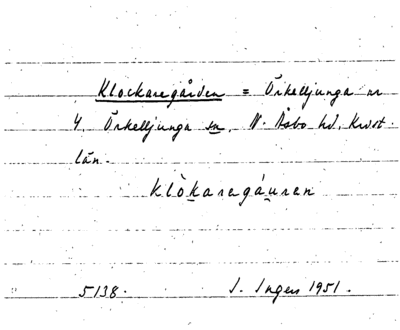 Klockaregården = Örkelljunga nr
4, Örkelljunga sn, N. Åsbo hd, Krist.
län.
klòkaregáuren
5138. I. Ingers 1951.